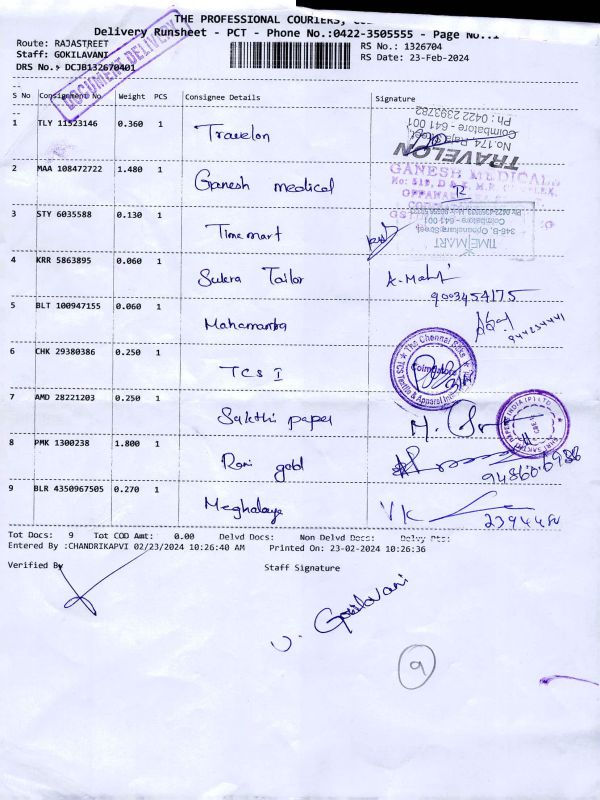 THE PROFESSIONAL COURIERS,
Delivery Runsheet - PCT - Phone No.:0422-3505555 - Page No.:1
Route: RAJASTREET
RS No.: 1326704
Staff: GOKILAVANI
RS Date: 23-Feb-2024
DRS No.: DCJB132670401
DOCUMENT DELIVERY
S No Consignment No Weight PCS Consignee Details Signature
1 TLY 11523146 0.360 1 Travelon
TRAVELON
No. 174, Raja Street,
Coimbatore - 641 001
Ph : 0422 2393782
2 MAA 108472722 1.480 1 Ganesh medical
GANESH MEDICAL
3 STY 6035588 0.130 1 Time mart
TIME MART
346-B, Oppanakara Street
Coimbatore - 641 001
4 KRR 5863895 0.060 1 Sukra Tailor
9003454175
5 BLT 100947155 0.060 1 Mahamantra
6 CHK 29380386 0.250 1 TCS I
The Chennai Silks
Coimbatore
TCS Textile & Apparel
7 AMD 28221203 0.250 1 Sakthi paper
8 PMK 1300238 1.800 1 Rani gold
9 BLR 4350967505 0.270 1 Meghalaya
VK
Tot Docs: 9 Tot COD Amt: 0.00 Delvd Docs: Non Delvd Docs: Delvy Pts:
Entered By :CHANDRIKAPVI 02/23/2024 10:26:40 AM Printed On: 23-02-2024 10:26:36
Verified By Staff Signature
V. Gokilavani
9